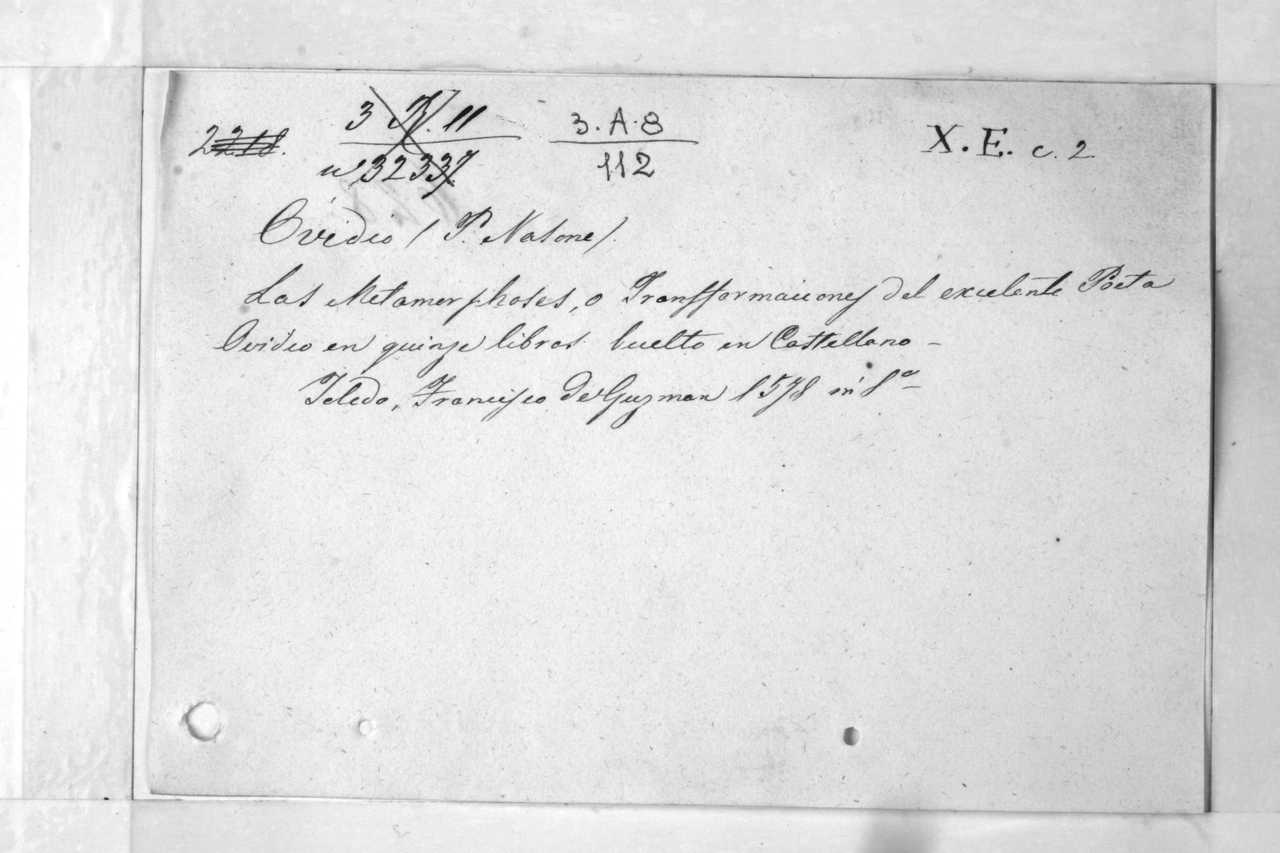 3. A. 8
112
X. E. c. 2
3 11
n° 32337
Ovidio (P. Nasone)
Las Metamorphoses, o Transformaciones del excelente Poeta
Ovidio en quinze libros buelto en Castellano -
Toledo, Francisco de Guzman 1578 in 8°